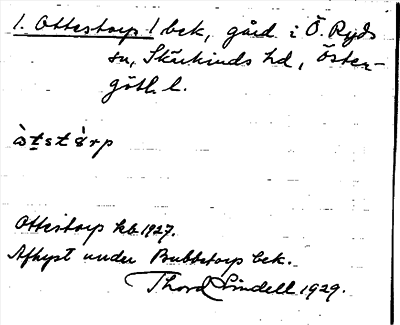 1. Ottestorp 1 bek, gård i Ö. Ryds
sn, Skärkinds hd, Öster-
götl. l.
òtstàrp
Ottestorp kb 1927.
Afhyst under Bubbetorp bek.
Thord Lindell 1929.